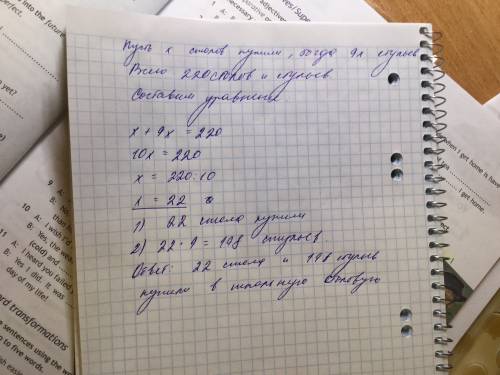 Пусть x столов купили, тогда 9x стульев
Всего 220 столов и стульев
Составим уравнение.
x + 9x = 220
10x = 220
x = 220:10
x = 22
1) 22 стола купили
2) 22 · 9 = 198 стульев
Ответ: 22 стола и 198 стульев
купили в школьную столовую
9 A:
10 A: I wish I'd
B: Yes, the wea
(cold) and
11 A: I heard you failed y
B: Yes I did. It was
day of my life!
rd transformations
e sentences using the wo
to five words.
when I get home is have
I get home.